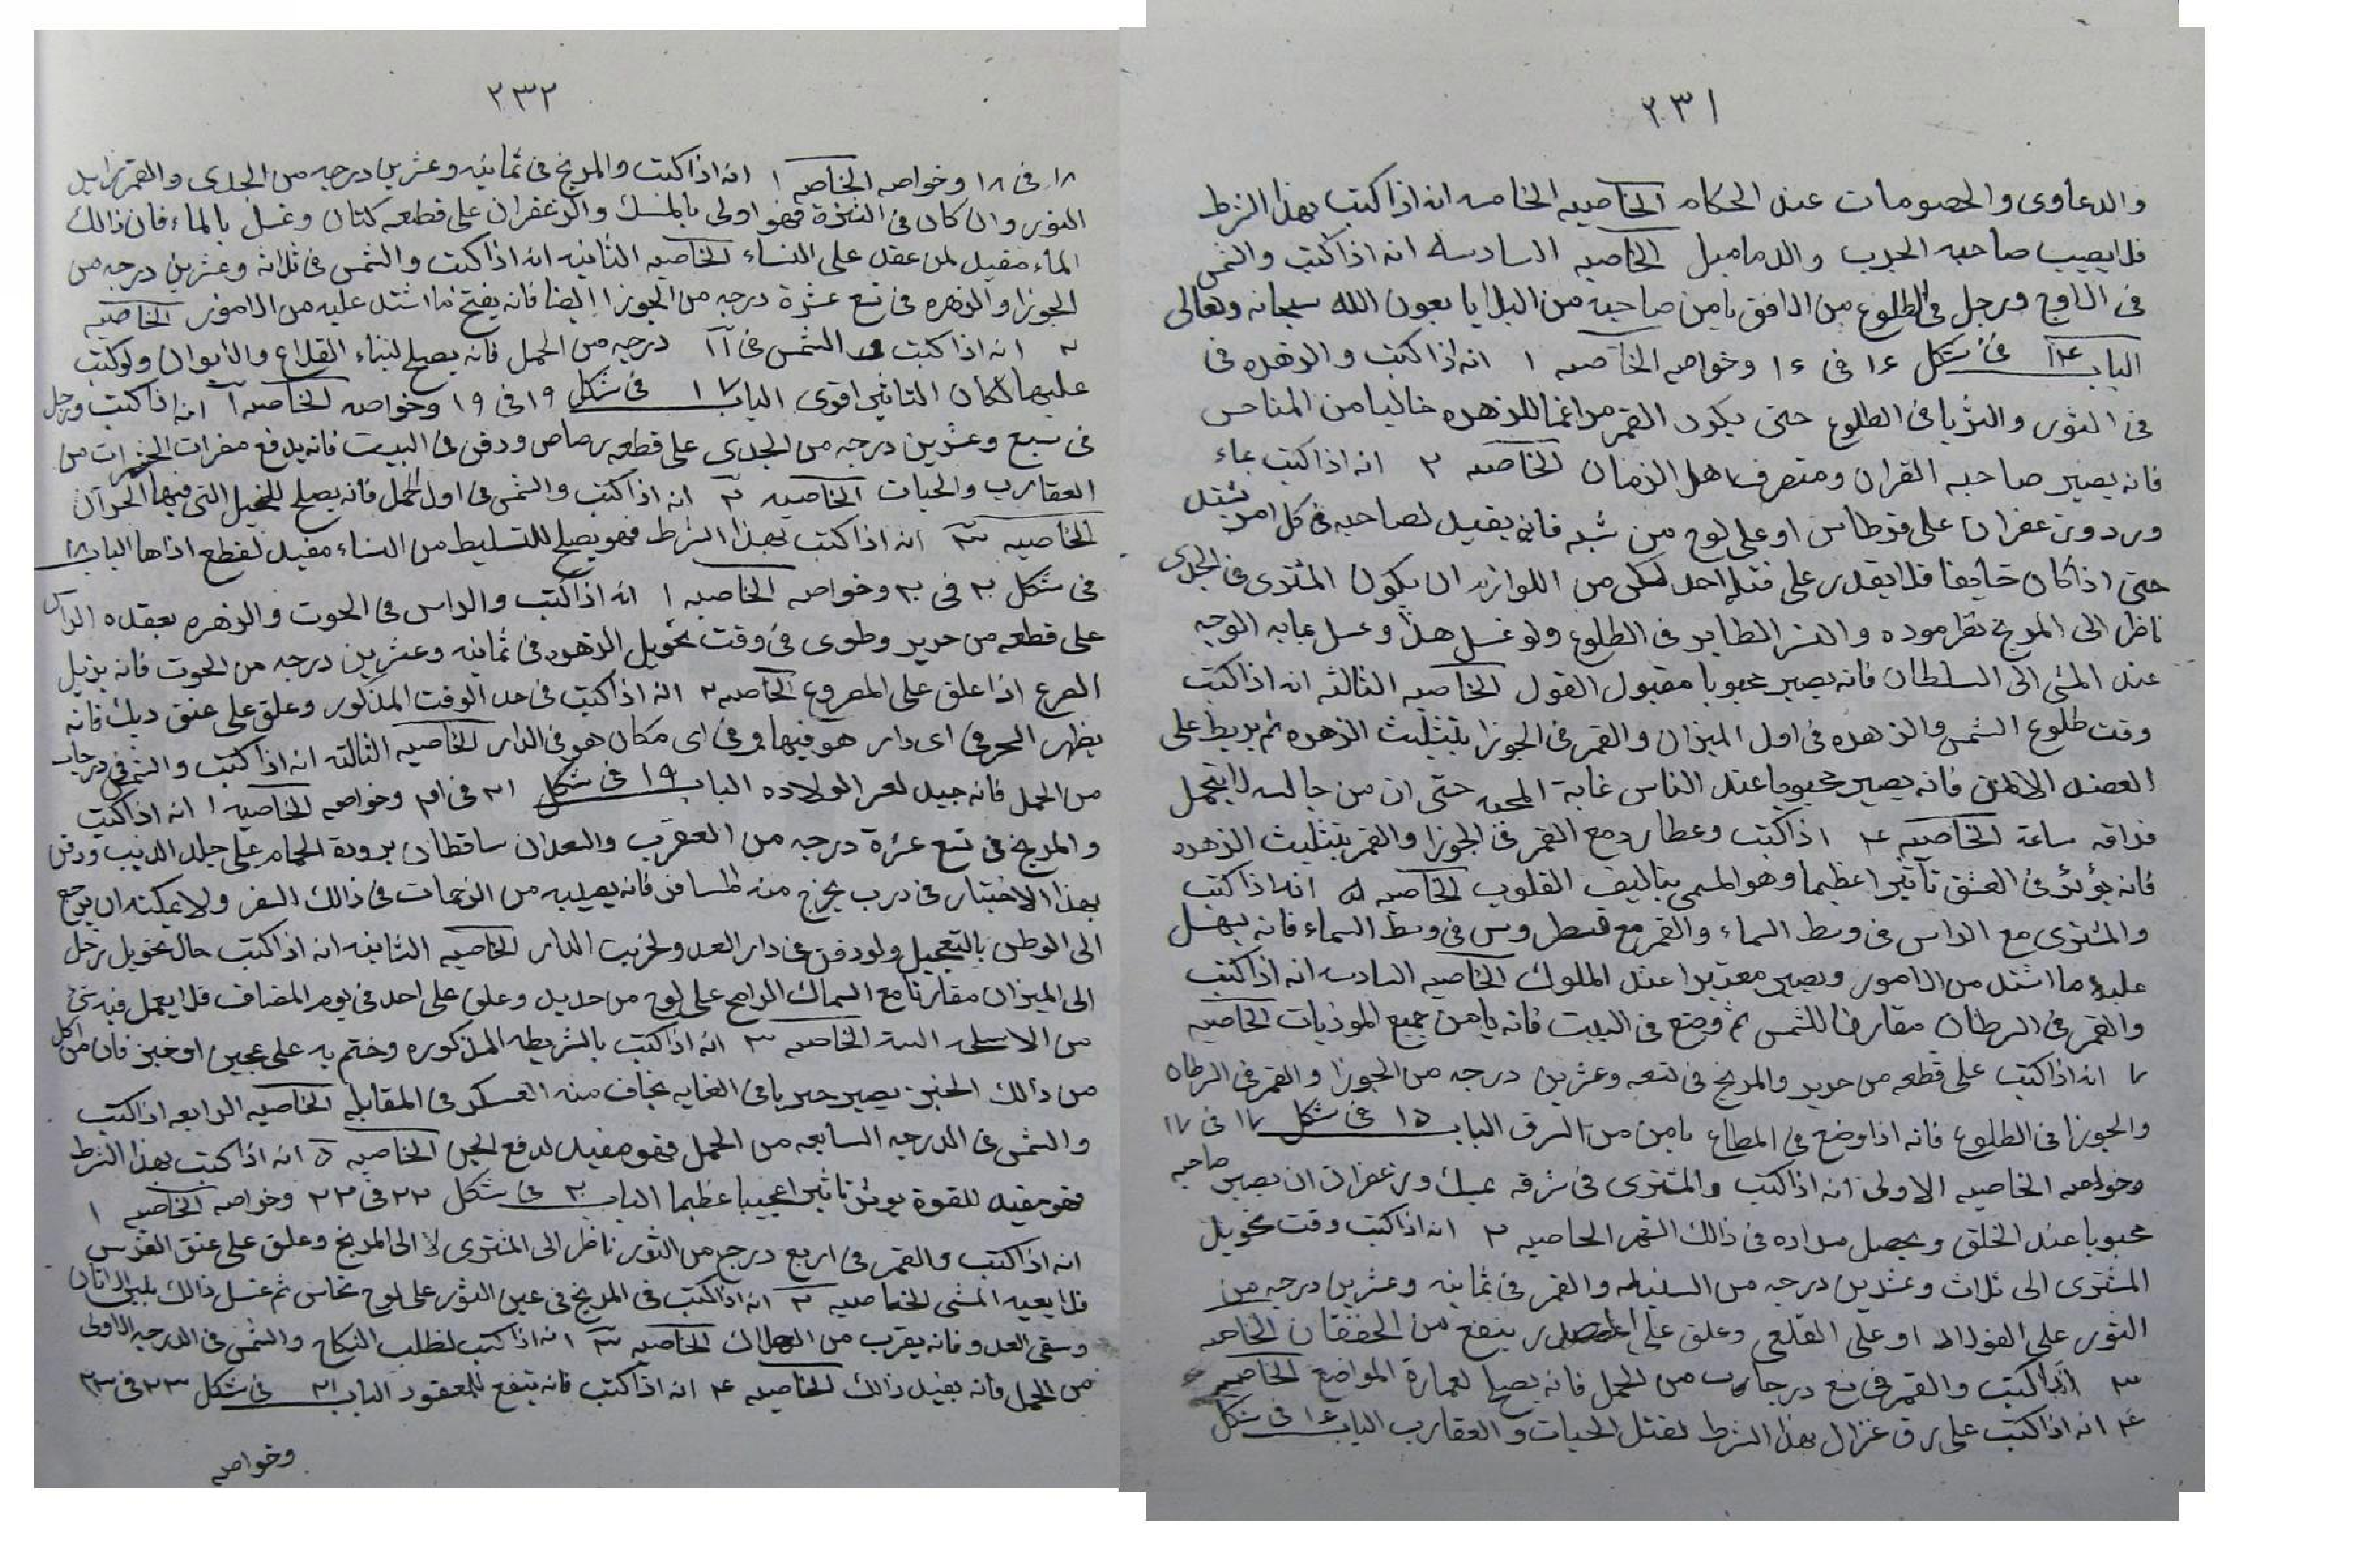 ٢٣١
والدعاوى والخصومات عند الحكام الخاصيه الخامسه انه اذا كتب بهذا الشرط
فلا يصيب صاحبه الجرب والدماميل الخاصيه السادسه انه اذا كتب والشمس
فى الاوج وزحل فى الطلوع من الافق يامن صاحبه من البلايا بعون الله سبحانه وتعالى
الباب ١٤ فى شكل ١٤ فى ١٤ وخواصه الخاصه ١ انه اذا كتب والزهره فى
فى الثور والثريا فى الطلوع حتى يكون القمر للزهره خاليا من المناحس
فانه يصير صاحبه القران ومتصرف اهل الزمان الخاصه ٢ انه اذا كتب بماء
ورد وزعفران على قرطاس او على لوح من شبه فانه يفيد لصاحبه فى كل امر يشتد
حتى اذا كان خايفا فلا يقدر على قتله احد لكن من اللوازم ان يكون المشترى فى الجدى
ناظر الى المريخ نظر موده والنسر الطاير فى الطلوع ولو غسل هذا وغسل بمايه الوجه
عند المشى الى السلطان فانه يصير محبوبا مقبول القول الخاصيه الثالثه انه اذا كتب
وقت طلوع الشمس والزهره فى اول الميزان والقمر فى الجوزا بتثليث الزهره ثم يربط على
العضد الايمن فانه يصير محبوبا عند الناس غاية المحبه حتى ان من جالسه لا يتحمل
فراقه ساعة الخاصيه ٤ اذا كتب وعطارد مع القمر فى الجوزا والقمر بتثليث الزهره
فانه يؤثر فى العشق تأثيرا عظيما وهو المسمى بتاليف القلوب الخاصيه ٥ انه اذا كتب
والمشترى مع الراس فى وسط السماء والقمر مع فى وسط السماء فانه يسهل
عليه ما اشتد من الامور ويصير معتبرا عند الملوك الخاصيه السادسه انه اذا كتب
والقمر فى السرطان مقارنا للشمس ثم وضع فى البيت فانه يامن جميع الموذيات الخاصيه
٧ انه اذا كتب على قطعه من حرير والمريخ فى تسعه وعشرين درجه من الجوزا والقمر فى السرطان
والجوزا فى الطلوع فانه اذا وضع فى المطاع يامن من السرق الباب ١٥ فى شكل ١٧ فى ١٧
وخواصه الخاصيه الاولى انه اذا كتب والمشترى فى شرفه بمسك وزعفران ان يصير صاحبه
محبوبا عند الخلق ويحصل مراده فى ذالك الشهر الخاصيه ٢ انه اذا كتب وقت تحويل
المشترى الى ثلاث وعشرين درجه من السنبله والقمر فى ثمانيه وعشرين درجه من
الثور على الفولاد او على القلعى وعلق على الصدر ينفع من الخفقان الخاصه
٣ اذا كتب والقمر فى تسع درجات من الحمل فانه يصلح لعمارة المواضع الخاصيه
٤ انه اذا كتب على رق غزال بهذا الشرط لقتل الحيات والعقارب الباب ١٦ فى شكل
٢٣٢
١٨ فى ١٨ وخواصه الخاصه ١ انه اذا كتب والمريخ فى ثمانيه وعشرين درجه من الجدى والقمر
الثور وان كان فى الشرف فهو اولى بالمسك والزعفران على قطعه كتان وغسل بالماء فان ذالك
الماء مفيد لمن عقد على النساء الخاصيه الثانيه انه اذا كتب والشمس فى ثلاثه وعشرين درجه من
الجوزا والزهره فى تسع عشرة درجه من الجوزا ايضا فانه يفتح ما اشتد عليه من الامور الخاصيه
٣ انه اذا كتب والشمس فى درجه من الحمل فانه يصلح لبناء القلاع والايوان ولو كتب
عليها لكان التاثير اقوى الباب ١٧ فى شكل ١٩ فى ١٩ وخواصه الخاصه ١ انه اذا كتب وزحل
فى سبع وعشرين درجه من الجدى على قطعه رصاص ودفن فى البيت فانه يدفع مضرات الحشرات من
العقارب والحيات الخاصيه ٢ انه اذا كتب والشمس فى اول الحمل فانه يصلح للخيل التى فيها الحران
الخاصيه ٣ انه اذا كتب بهذا الشرط فهو يصلح للتسليط من النساء مفيد لقطع اذاها الباب ١٨
فى شكل ٢٠ فى ٢٠ وخواصه الخاصيه ١ انه اذا كتب والراس فى الحوت والزهره بعقده الراس
على قطعه من حرير وطوى فى وقت تحويل الزهره فى ثمانيه وعشرين درجه من الحوت فانه يزيل
الصرع اذا علق على المصروع الخاصه ٢ انه اذا كتب فى حد الوقت المذكور وعلق على عنق ديك فانه
يظهر السحر فى اى دار هو فيها وفى اى مكان هو فى الدار الخاصيه الثالثه انه اذا كتب والشمس فى درجات
من الحمل فانه جيد لعسر الولاده الباب ١٩ فى شكل ٢١ فى ٢١ وخواصه الخاصيه ١ انه اذا كتب
والمريخ فى تسع عشرة درجه من العقرب والسعدان ساقطان على جلد الذيب ودفن
بهذا الاختيار فى درب يخرج منه المسافر فانه يصيبه من الزحمات فى ذالك السفر ولا يمكنه ان يرجع
الى الوطن بالتعجيل ولو دفن فى دار العدو لخربت الدار الخاصيه الثانيه انه اذا كتب حال تحويل زحل
الى الميزان مقارنا مع السماك الرامح على لوح من حديد وعلق على احد فى يوم المصاف فلا يعمل فيه شئ
من الاسلحه البتة الخاصه ٣ انه اذا كتب بالشريطه المذكوره وختم به على عجين او خبز فان من اكل
من ذالك الخبز يصير حربا فى الغايه يخاف منه العسكر فى المقابله الخاصيه الرابعه اذا كتب
والشمس فى الدرجه السابعه من الحمل فهو مفيد لدفع الجن الخاصيه ٥ انه اذا كتب بهذا الشرط
فهو مفيد للقوة يوثر تاثيرا عجيبا عظيما الباب ٢٠ فى شكل ٢٢ فى ٢٢ وخواصه الخاصيه ١
انه اذا كتب والقمر فى اربع درج من الثور ناظر الى المشترى لا الى المريخ وعلق على عنق الفرس
فلا يعيه المشى الخاصيه ٢ انه اذا كتب فى المريخ فى عين الثور على لوح نحاس ثم غسل ذالك بلبن الاتان
وسقى العدو فانه يقرب من الهلاك الخاصيه ٣ انه اذا كتب لطلب النكاح والشمس فى الدرجه الاولى
من الحمل فانه يفيد ذالك الخاصيه ٤ انه اذا كتب فانه ينفع للمعقود الباب ٢١ فى شكل ٢٣ فى ٢٣
وخواصه